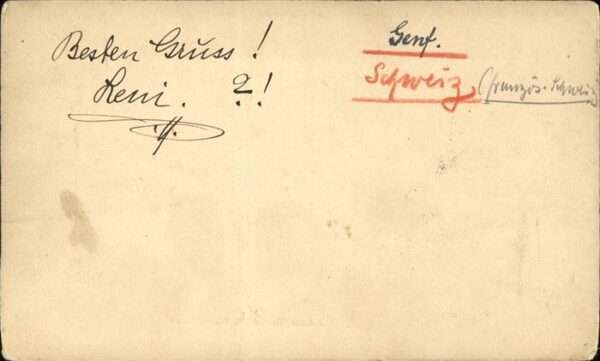 Besten Gruss!
Leni. ?!
Genf.
Schweiz, (französ. Schweiz)